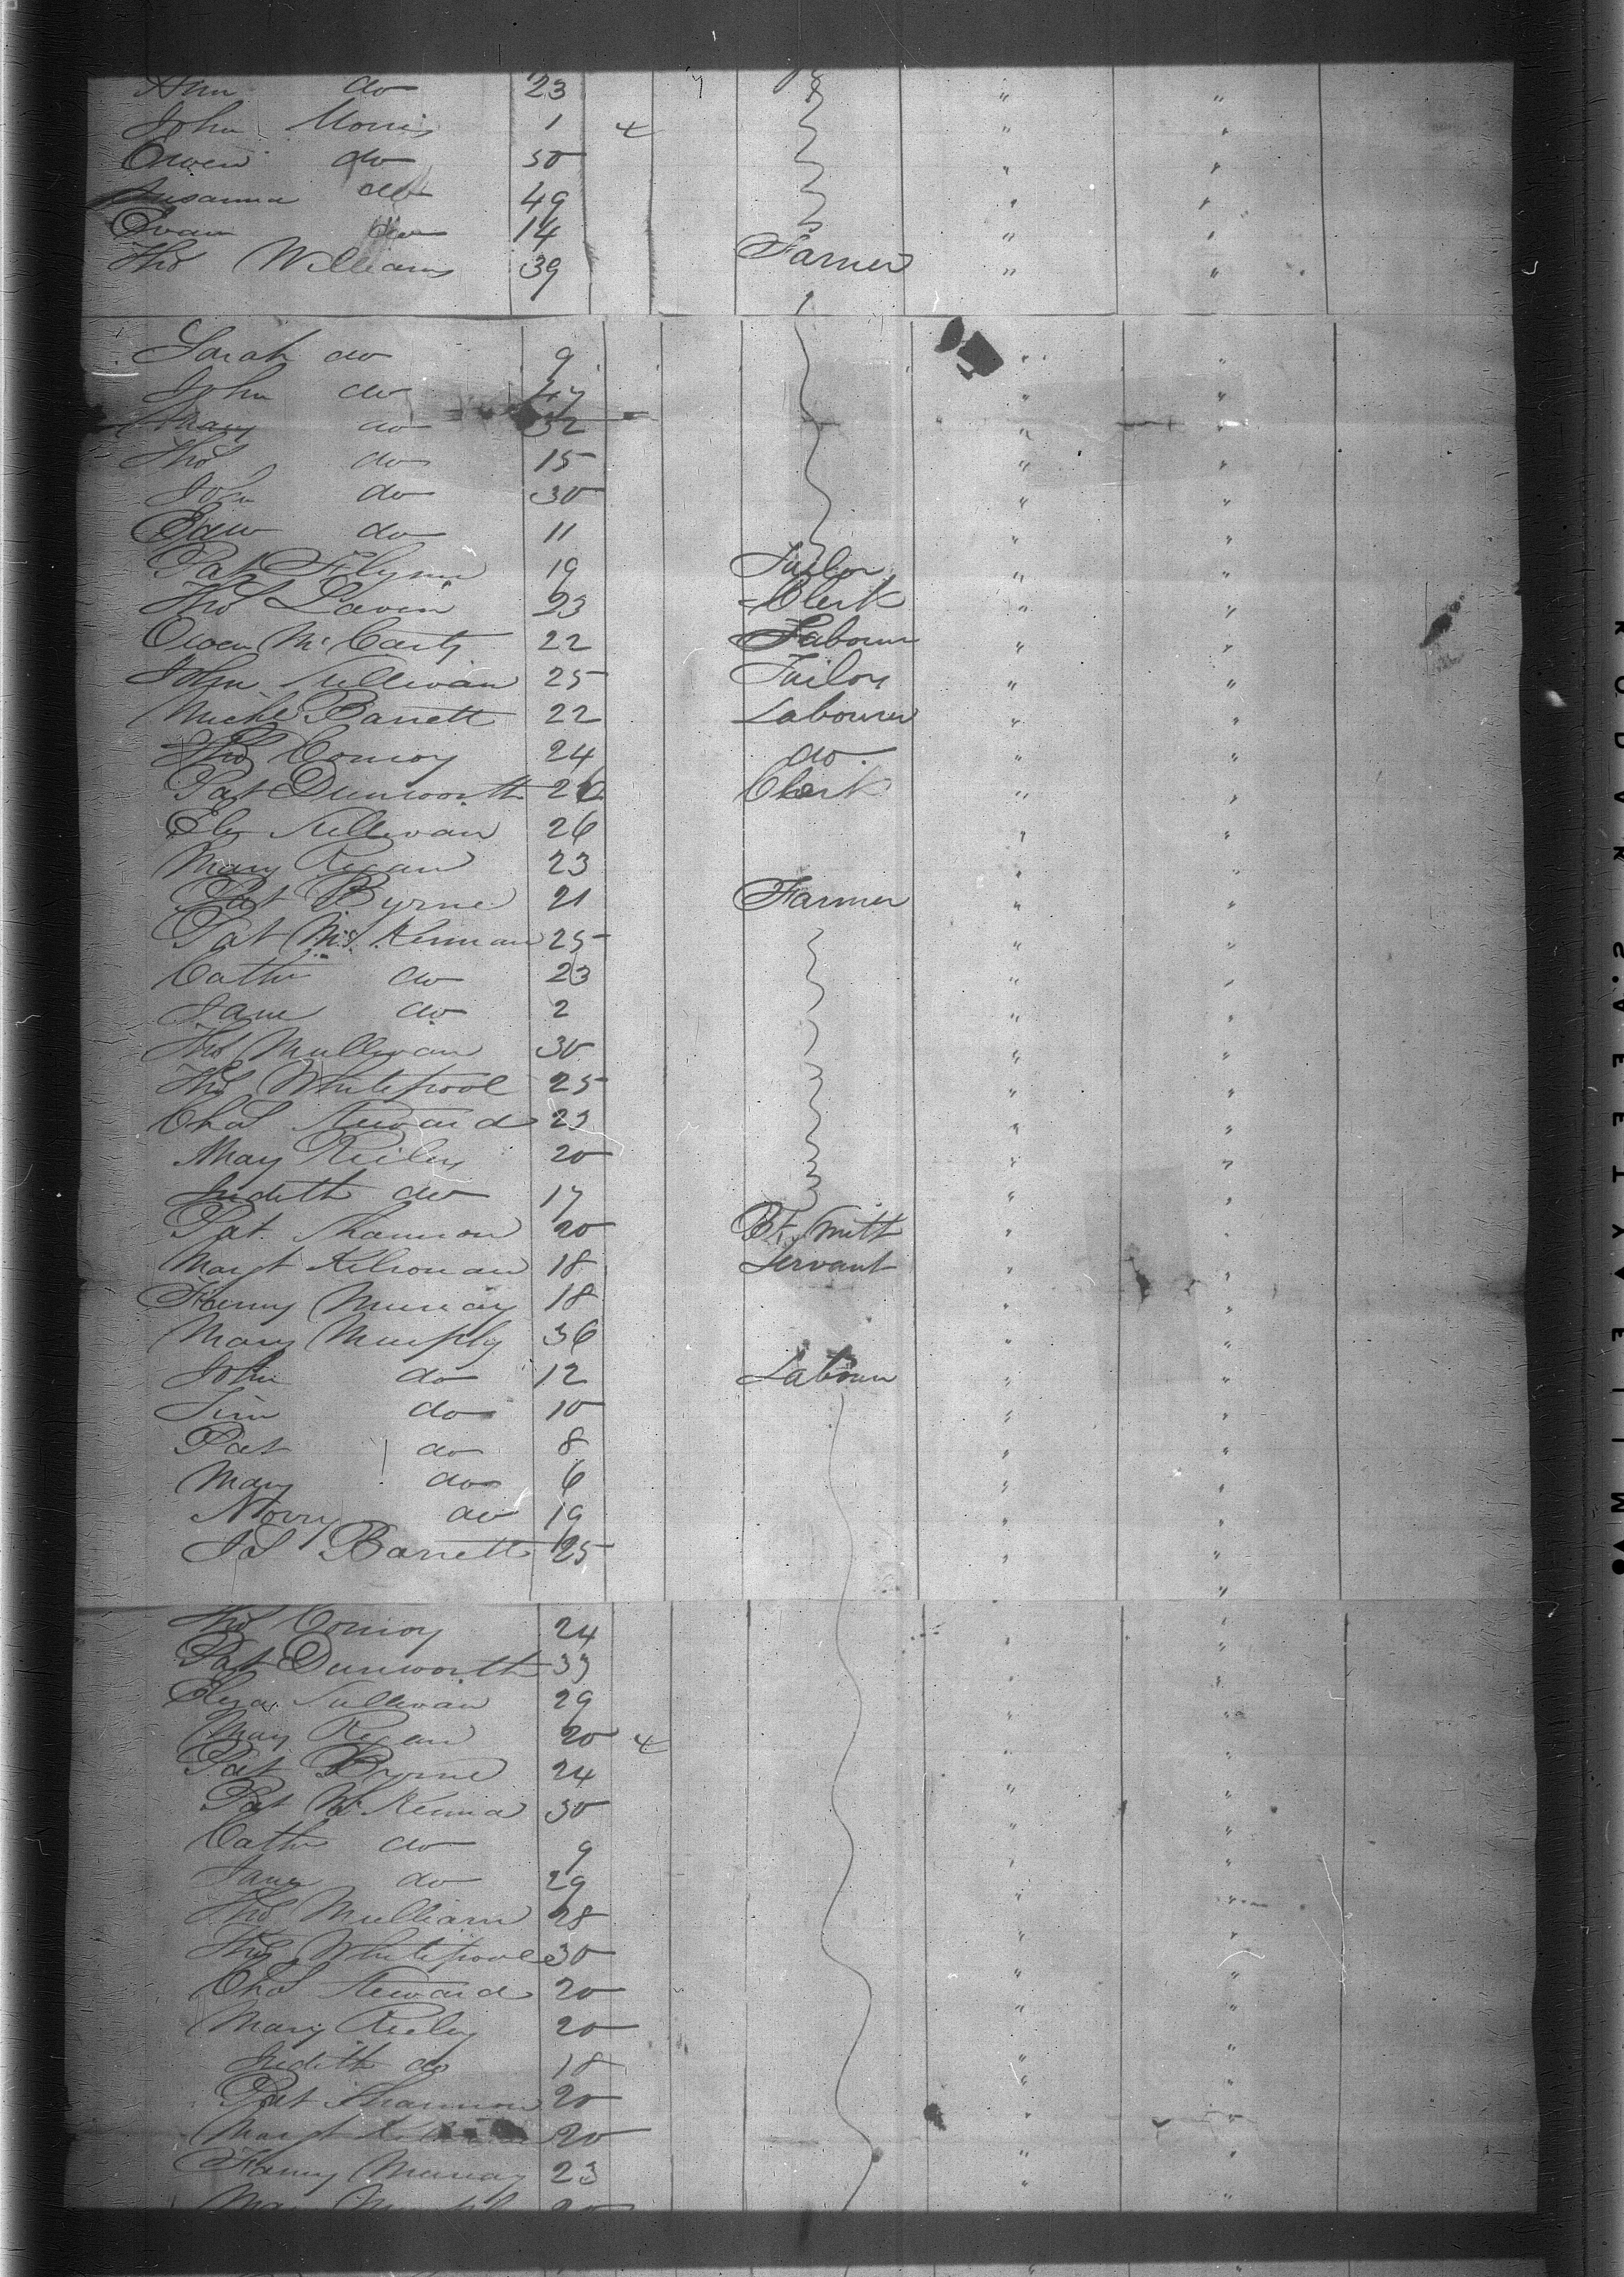 Ann do 23 " "
John Morris 1 4 " "
Owen do 50 " "
Susanna do 49 " "
Evan do 14 " "
Thos Williams 39 Farmer " "
Sarah do 9 " "
John do 47 " "
Mary do 32 " "
Thos do 15 " "
John do 30 " "
Edw do 11 " "
Pat Flynn 19 Tailor " "
Thos Lavin 23 Clerk " "
Owen McCarty 22 Labourer " "
John Sullivan 25 Tailor " "
Michl Barrett 22 Labourer " "
Thos Conroy 24 do " "
Pat Dunworth 26 Clerk " "
Eliz Sullivan 26 " "
Mary Regan 23 " "
Pat Byrne 21 Farmer " "
Pat McKennan 25 " "
Cathe do 23 " "
Jane do 2 " "
Thos Mullivan 30 " "
Thos Whitepool 25 " "
Chas Steward 23 " "
Mary Reiley 20 " "
Judith do 17 " "
Pat Shannon 20 Bk Smith " "
Margt Kilronan 18 Servant " "
Fanny Murray 18 " "
Mary Murphy 36 " "
John do 12 Labourer " "
Tim do 10 " "
Pat do 8 " "
Mary do 6 " "
Norry do 19 " "
Jas Barrett 25 " "
Thos Conroy 24 " "
Pat Dunworth 33 " "
Eliza Sullivan 29 " "
Mary Regan 20 4 " "
Pat Byrne 24 " "
Pat McKenna 30 " "
Cathe do 9 " "
Jane do 29 " "
Thos Mulliam 28 " "
Thos Whitepoole 30 " "
Chas Steward 20 " "
Mary Reiley 20 " "
Judith do 18 " "
Pat Shannon 20 " "
Margt 20
Fanny Murray 23 " "